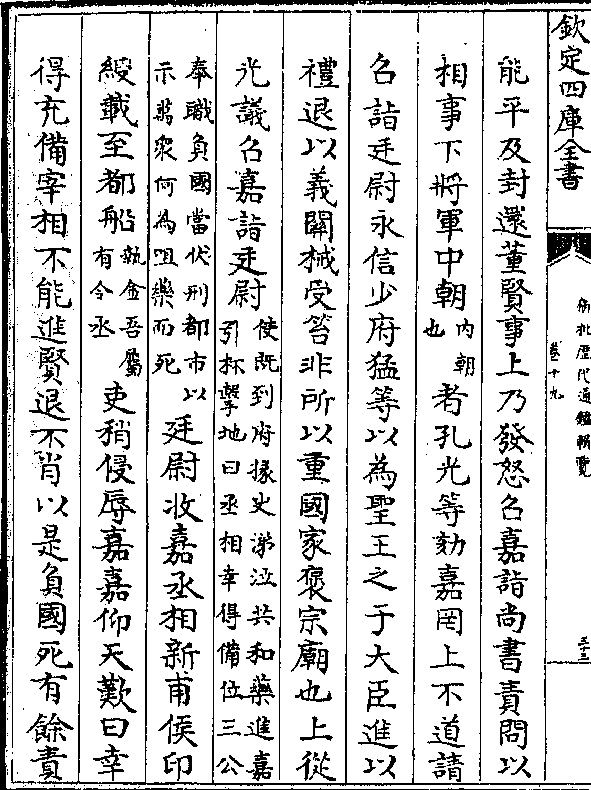 欽定四庫全書
御批歷代通鑑輯覽
卷十九
三十三
能平及封還董賢事上乃發怒召嘉詣尚書責問以
相事下將軍中朝内朝也者孔光等劾嘉罔上不道請
召詣廷尉永信少府猛等以為聖王之于大臣進以
禮退以義關械受笞非所以重國家褒宗廟也上從
光議召嘉詣廷尉使既到府掾史涕泣共和藥進嘉引杯擊地曰丞相幸得備位三公
奉職負國當伏刑都市以示萬衆何為咀藥而死廷尉收嘉丞相新甫侯印
綬載至都船執金吾屬有令丞吏稍侵辱嘉嘉仰天歎曰幸
得充備宰相不能進賢退不肖以是負國死有餘責